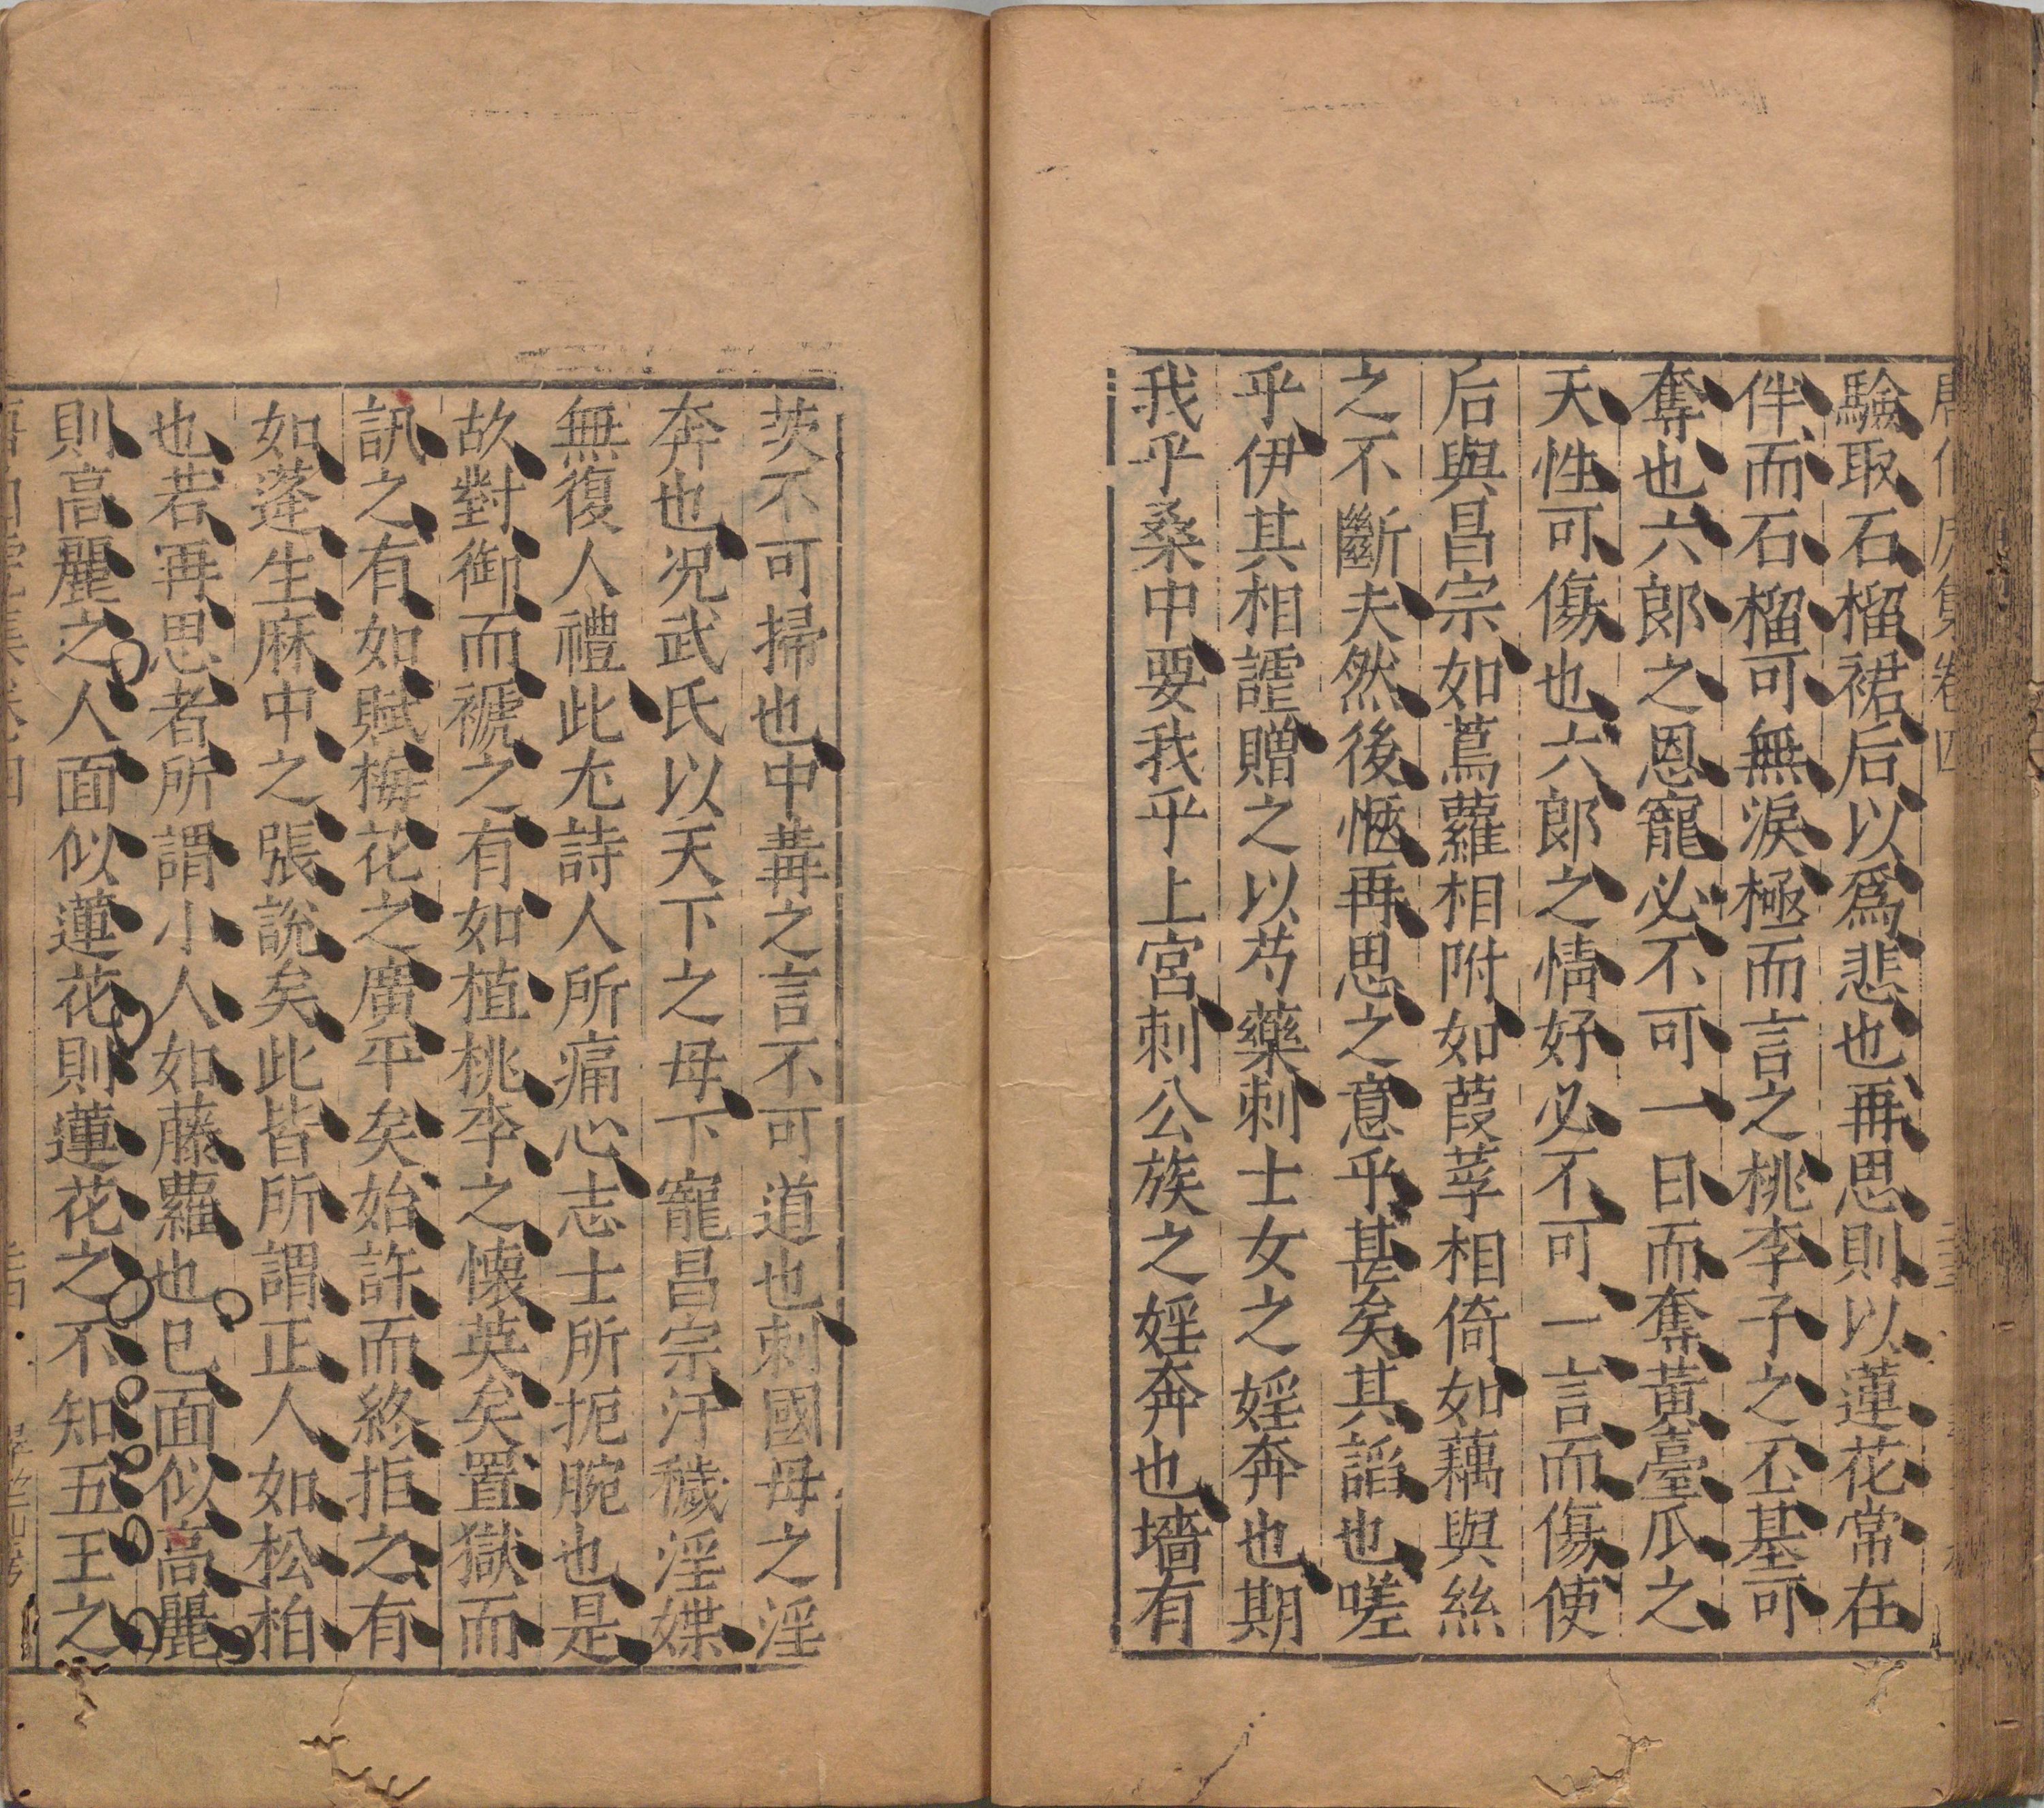 驗取石榴裙后以爲悲也再思則以蓮花常在
伴而石榴可無淚極而言之桃李子之丕基可
奪也六郎之恩寵必不可一日而奪黃臺瓜之
天性可傷也六郎之情好必不可一言而傷使
后與昌宗如蔦蘿相附如葭莩相倚如藕與絲
之不斷夫然後愜再思之意乎甚矣其謟也嗟
乎伊其相謔贈之以芍藥刺士女之婬奔也期
我乎桑中要我乎上宮刺公族之婬奔也墻有
茨不可掃也中冓之言不可道也刺國母之淫
奔也况武氏以天下之母下寵昌宗汙穢淫媟
無復人禮此尤詩人所痛心志士所扼腕也是
故對御而褫之有如植桃李之懷英矣置獄而
訊之有如賦梅花之廣平矣始許而終拒之有
如蓬生麻中之張說矣此皆所謂正人如松柏
也若再思者所謂小人如藤蘿也已面似高麗
則高麗之人面似蓮花則蓮花之不知五王之